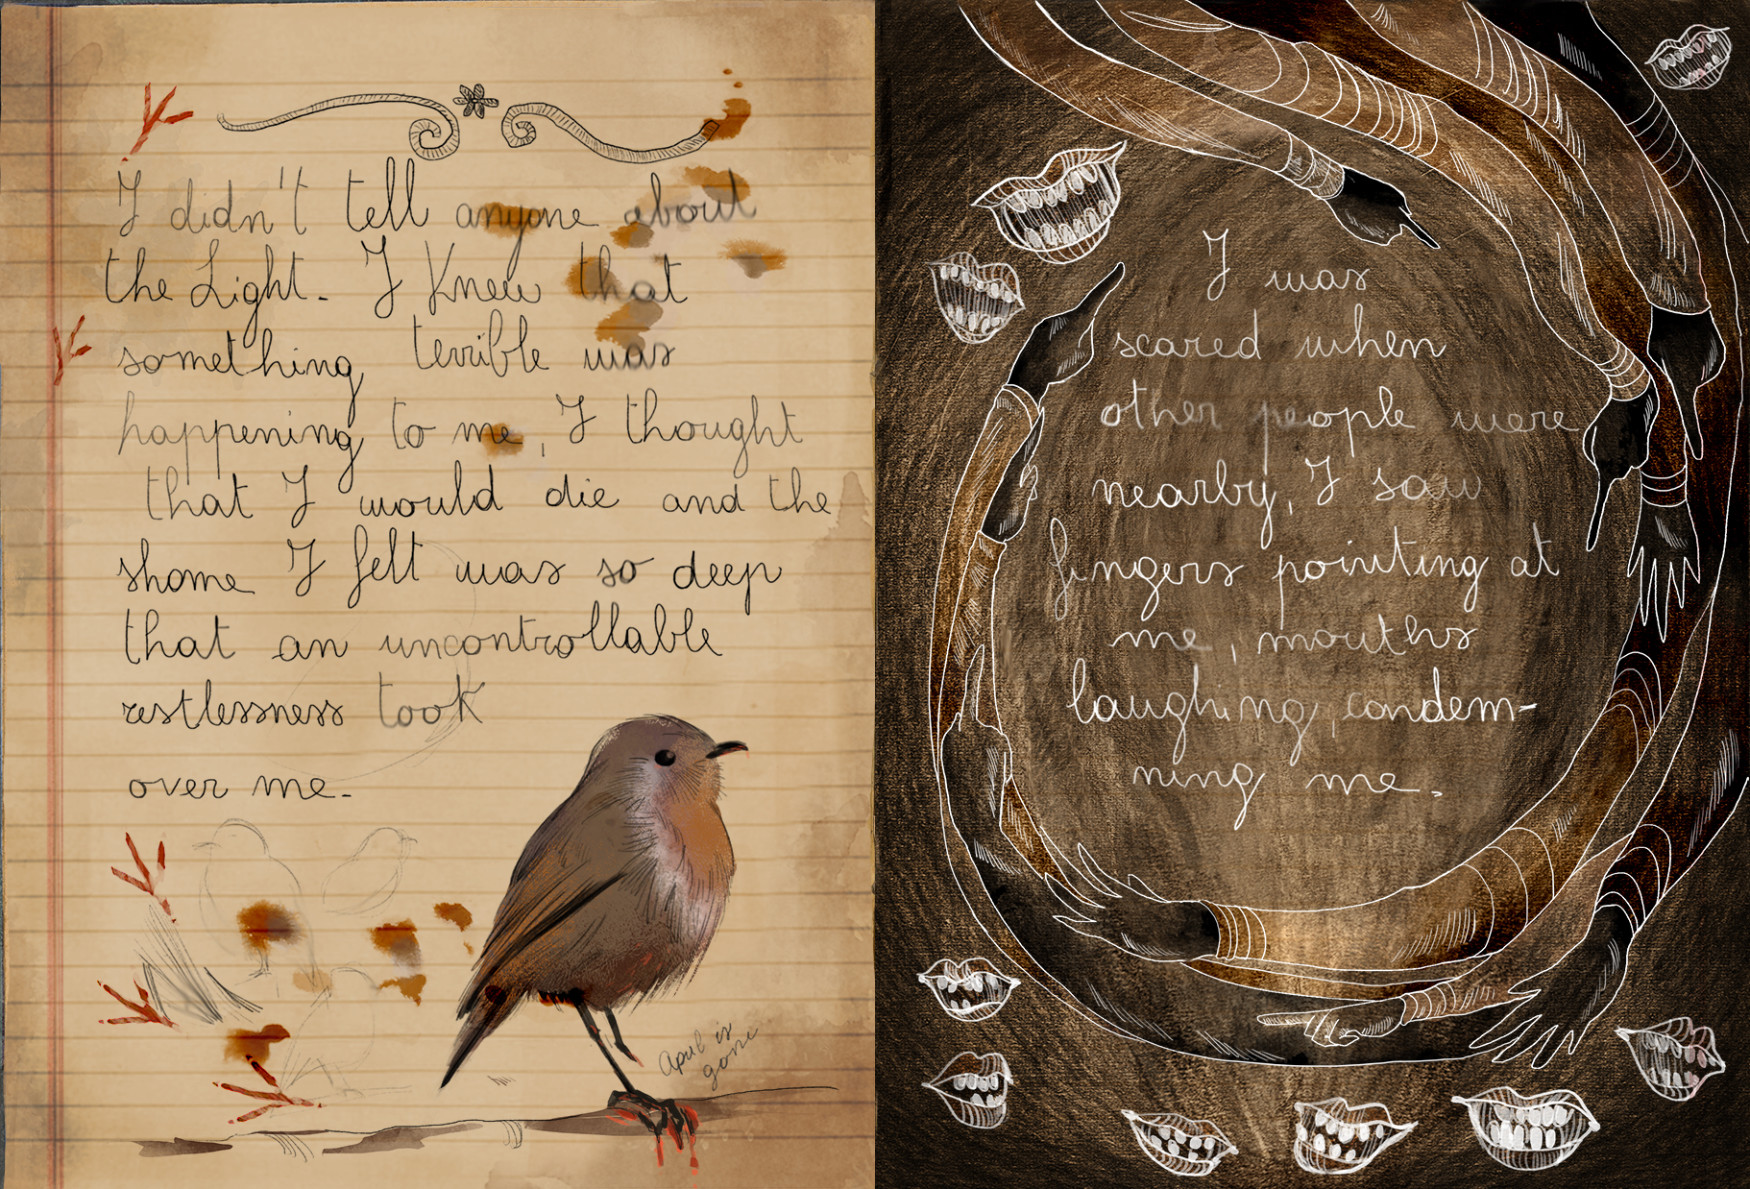 I didn't tell anyone about
the Light. I knew that
something terrible was
happening to me, I thought
that I would die and the
shame I felt was so deep
that an uncontrollable
restlessness took
over me.
April is
gone
I was
scared when
other people were
nearby, I saw
fingers pointing at
me, mouths
laughing, condem-
ning me.